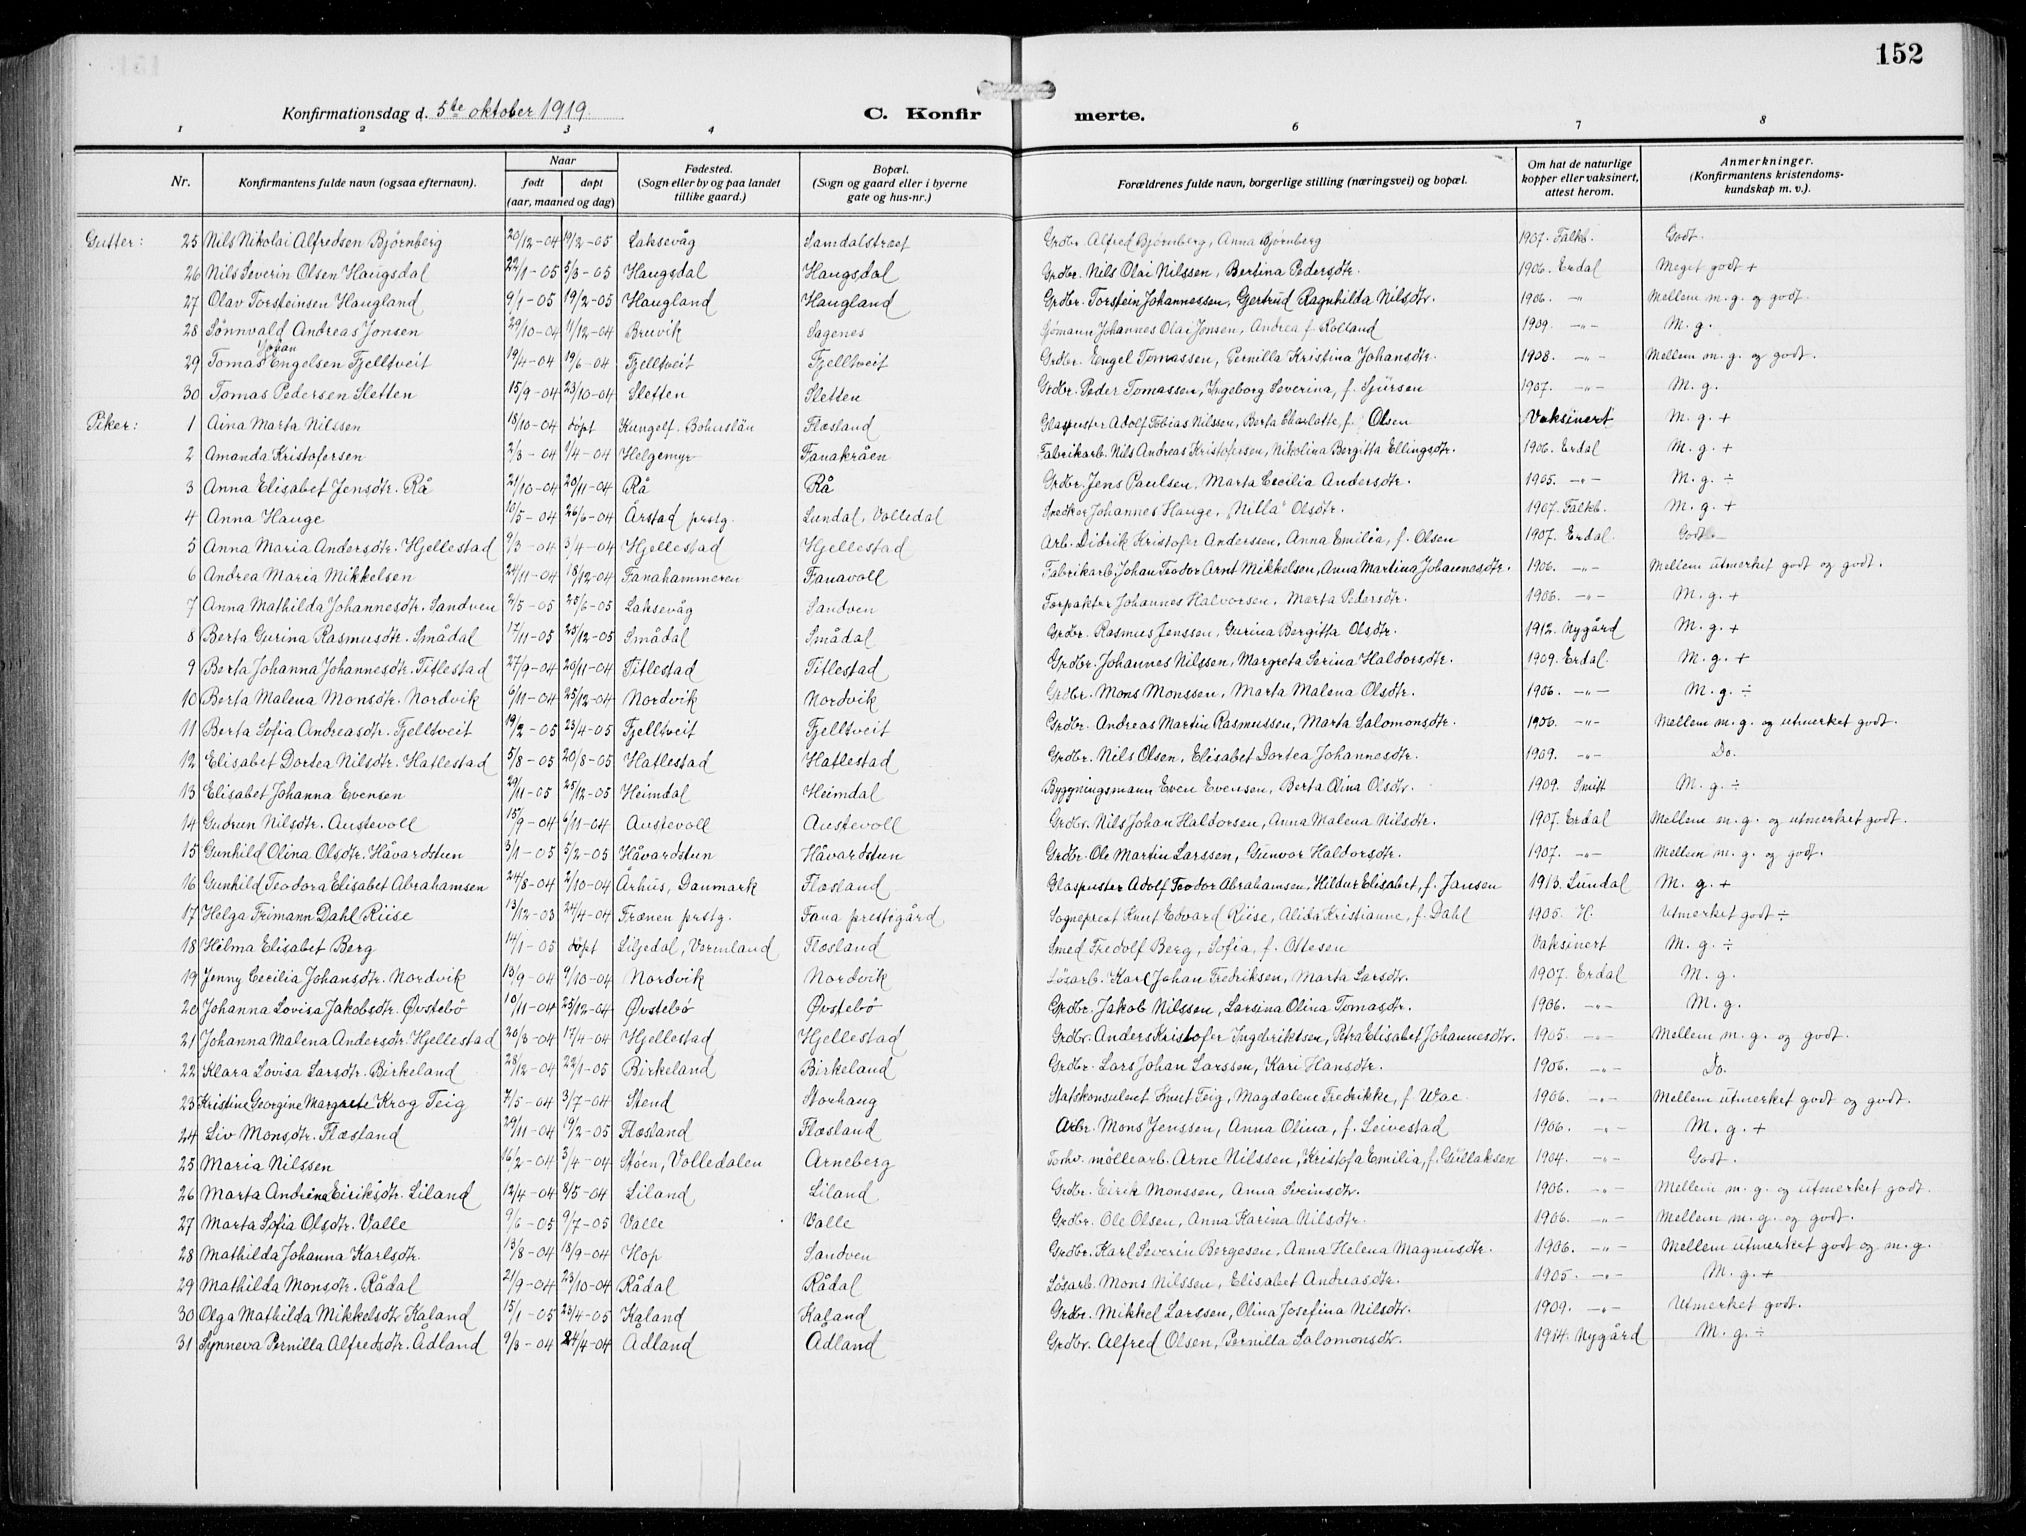 152
Konfirmationsdag d. 5te oktober 1919. C. Konfirmerte.
1 2 3 4 5 6 7 8
Nr. Konfirmantens fulde navn (ogsaa efternavn). Naar født døpt (aar, maaned og dag) Fødested. (Sogn eller by og paa landet tillike gaard.) Bopæl. (Sogn og gaard eller i byerne gate og hus-nr.) Forældrenes fulde navn, borgerlige stilling (næringsvei) og bopæl. Om hat de naturlige kopper eller vaksinert, attest herom. Anmerkninger. (Konfirmantens kristendomskundskap m. v.).
Gutter: 25 Nils Nikolai Alfredsen Bjørnberg 20/12-04 19/2-05 Laksevåg Samdalstræet Grdbr. Alfred Bjørnberg, Anna Bjørnberg 1907. Falkb. Godt.
26 Nils Severin Olsen Haugsdal 22/1-05 5/3-05 Haugsdal Haugsdal Grdbr. Nils Olai Nilssen, Bertina Pedersdtr. 1906. Erdal Meget godt +
27 Olav Torsteinsen Haugland 9/1-05 19/2-05 Haugland Haugland Grdbr. Torstein Johannessen, Gertrud Ragnhilda Nilsdtr. 1906. -"- Mellem m. g. og godt.
28 Sønnvald Andreas Jonsen 29/10-04 11/12-04 Bruvik Sagenes Sjømann Johannes Olai Jonsen, Andrea f. Rolland 1909. -"- M. g.
29 Tomas Johan Engelsen Fjelltveit 19/4-04 19/6-04 Fjelltveit Fjelltveit Grdbr. Engel Tomassen, Pernilla Kristina Johansdtr. 1908. -"- Mellem m. g. og godt.
30 Tomas Pedersen Sletten 15/9-04 23/10-04 Sletten Sletten Grdbr. Peder Tomassen, Ingeborg Severina, f. Sjursen 1907. -"- M. g.
Piker: 1 Aina Marta Nilssen 18/10-04 døpt Kungelf. Bohuslän Flæsland Glaspuster Adolf Tobias Nilssen, Berta Charlotte, f. Olsen Vaksinert M. g. +
2 Amanda Kristofersen 2/3-04 1/4-04 Helgemyr Fanakråen Fabrikarb. Nils Andreas Kristofersen, Nikolina Bergitta Ellingsdtr. 1906. Erdal M. g. +
3 Anna Elisabet Jensdtr. Rå 21/10-04 20/11-04 Rå Rå Grdbr. Jens Paulsen, Marta Cecilia Andersdtr. 1905. -"- M. g. ÷
4 Anna Hauge 10/5-04 26/6-04 Årstad prstg. Lundal, Volledal Snedker Johannes Hauge, "Nilla" Olsdtr. 1907. Falkb. M. g. +
5 Anna Maria Andersdtr. Hjellestad 9/3-04 3/4-04 Hjellestad Hjellestad Arb. Didrik Kristofer Anderssen, Anna Emilia, f. Olsen 1907. Erdal. Godt
6 Andrea Maria Mikkelsen 24/11-04 18/12-04 Fanahammeren Fanavoll Fabrikarb. Johan Teodor Arnt Mikkelsen, Anna Martina Johannesdtr. 1906. -"- Mellem utmerket godt og godt.
7 Anna Mathilda Johannesdtr. Sandven 2/5-05 25/6-05 Laksevåg Sandven Forpakter Johannes Halvorsen, Marta Pedersdtr. 1906. -"- M. g. +
8 Berta Gurina Rasmusdtr. Smådal 17/11-05 25/12-05 Smådal Smådal Grdbr. Rasmus Jenssen, Gurina Bergitta Olsdtr. 1912. Nygård M. g. +
9 Berta Johanna Johannesdtr. Titlestad 27/9-04 20/11-04 Titlestad Titlestad Grdbr. Johannes Nilssen, Margreta Serina Haldorsdtr. 1909. Erdal. M. g. +
10 Berta Malena Monsdtr. Nordvik 6/11-04 25/12-04 Nordvik Nordvik Grdbr. Mons Monssen, Marta Malena Olsdtr. 1906. -"- M. g. ÷
11 Berta Sofia Andreasdtr. Fjelltveit 19/2-05 23/4-05 Fjelltveit Fjelltveit Grdbr. Andreas Martin Rasmussen, Marta Salomonsdtr. 1906. -"- Mellem m. g. og utmerket godt.
12 Elisabet Dortea Nilsdtr. Hatlestad 5/8-05 20/8-05 Hatlestad Hatlestad Grdbr. Nils Olsen, Elisabet Dortea Johannesdtr. 1909. -"- Do.
13 Elisabet Johanna Evensen 29/11-05 25/12-05 Heimdal Heimdal Bygningsmann Even Evensen, Berta Olina Olsdtr. 1909. Smitt M. g. ÷
14 Gudrun Nilsdtr. Austevoll 15/9-04 6/11-04 Austevoll Austevoll Grdbr. Nils Johan Haldorsen, Anna Malena Nilsdtr. 1907. Erdal Mellem m. g. og utmerket godt.
15 Gunhild Olina Olsdtr. Håvardstun 3/1-05 5/2-05 Håvardstun Håvardstun Grdbr. Ole Martin Larssen, Gunvor Haldorsdtr. 1907. -"- Mellem m. g. og godt.
16 Gunhild Teodora Elisabet Abrahamsen 24/8-04 2/10-04 Århus, Danmark Flæsland Glaspuster Adolf Teodor Abrahamsen, Hildur Elisabet, f. Jansen 1913. Lundal M. g. +
17 Helga Frimann Dahl Riise 13/12-03 24/4-04 Trænen prstg. Fana prestigård Sogneprest Knut Edvard Riise, Alida Kristianne, f. Dahl 1905. H. Utmerket godt ÷
18 Hilma Elisabet Berg 14/1-05 døpt Liljedal, Vermland Flæsland Smed Fredolf Berg, Sofia, f. Ottesen Vaksinert M. g. ÷
19 Jenny Cecilia Johansdtr. Nordvik 13/9-04 9/10-04 Nordvik Nordvik Løsarb. Karl Johan Fredriksen, Marta Larsdtr. 1907. Erdal M. g.
20 Johanna Lovisa Jakobsdtr. Øvstebø 10/11-04 25/12-04 Øvstebø Øvstebø Grdbr. Jakob Nilssen, Larsina Olina Tomasdtr. 1906. -"- M. g.
21 Johanna Malena Andersdtr. Hjellestad 20/3-04 17/4-04 Hjellestad Hjellestad Grdbr. Anders Kristofer Ingebriktsen, Petra Elisabet Johannesdtr. 1905. -"- Mellem m. g. og godt.
22 Klara Lovisa Larsdtr. Birkeland 28/12-04 22/1-05 Birkeland Birkeland Grdbr. Lars Johan Larssen, Kari Hansdtr. 1906. -"- Do.
23 Kristine Georgine Margrete Krog Teig 7/5-04 3/7-04 Stend Storhaug Statskonsulent Knut Teig, Magdalene Fredrikke, f. Wae 1906. -"- Mellem utmerket godt og godt.
24 Liv Monsdtr. Flæsland 29/11-04 19/2-05 Flæsland Flæsland Arbr. Mons Jenssen, Anna Olina, f. Leivestad 1906. -"- M. g. +
25 Maria Nilssen 16/2-04 3/4-04 Støen, Volledalen Arneberg Forhv. møllearb. Arne Nilssen, Kristofa Emilia, f. Gullaksen 1904. -"- Godt.
26 Marta Andrina Eiriksdtr. Liland 12/4-04 8/5-04 Liland Liland Grdbr. Eirik Monssen, Anna Sveinsdtr. 1906. -"- Mellem m. g. og utmerket godt.
27 Marta Sofia Olsdtr. Valle 9/6-05 9/7-05 Valle Valle Grdbr. Ole Olsen, Anna Karina Nilsdtr. 1906. -"- Mellem m. g. og godt.
28 Mathilda Johanna Karlsdtr. 13/8-04 18/9-04 Hop Sandven Grdbr. Karl Severin Bergesen, Anna Helena Magnusdtr. 1906. -"- Mellem utmerket godt og m. g.
29 Mathilda Monsdtr. Rådal 21/9-04 23/10-04 Rådal Rådal Løsarb. Mons Nilssen, Elisabet Andreasdtr. 1905. -"- M. g. +
30 Olga Mathilda Mikkelsdtr Kaland 15/1-05 23/4-05 Kaland Kaland Grdbr. Mikkel Larssen, Olina Josefina Nilsdtr. 1909. -"- Utmerket godt.
31 Synneva Pernilla Alfredsdtr. Ådland 9/3-04 24/4-04 Ådland Ådland Grdbr. Alfred Olsen, Pernilla Salomonsdtr. 1914. Nygård M. g. ÷